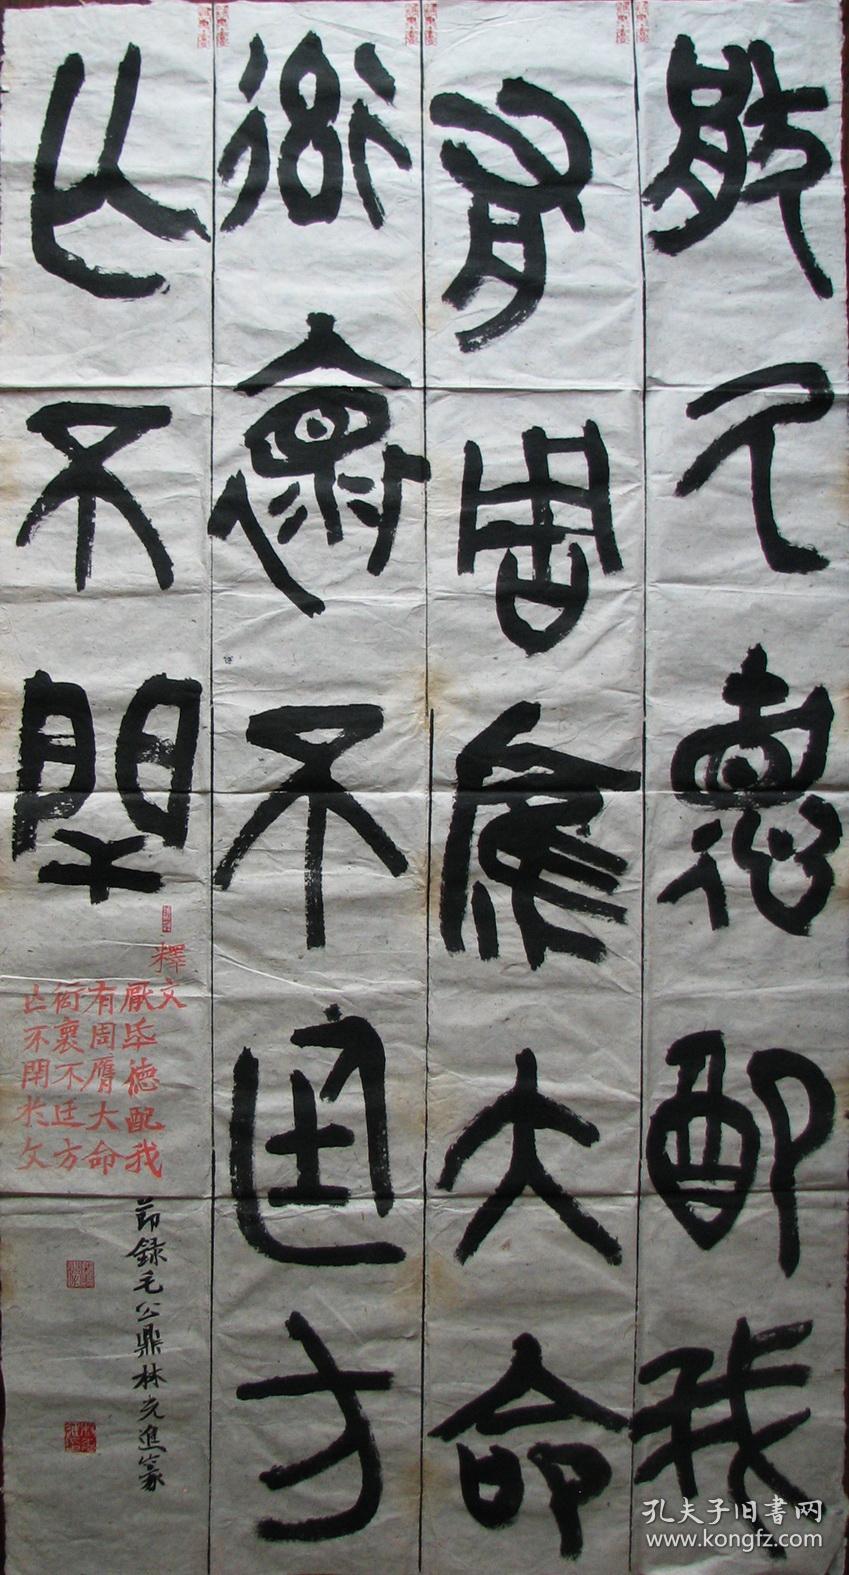 厥氒德配我
有周膺大命
衒褱不廷方
亡不閈
釋文
厥氒德配我
有周膺大命
衒褱不廷方
亡不閈於文
節録毛公鼎林光進篆
孔夫子旧書网
www.kongfz.com